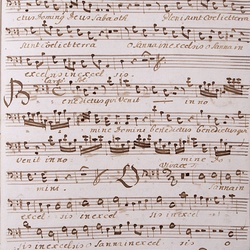 ctus Dominus Deus Sabaoth Pleni sunt Coeli et terra
sunt Coeli et terra Osanna in excelsis osanna in
excelsis in excel sis.
Largo
Benedictus qui Venit in no
mine Domini benedictus benedictus qui
Venit in no mine Do
Vivace
mini. Osanna in
excel sis in excel sis in excel
sis in excelsis osanna in excel sis.